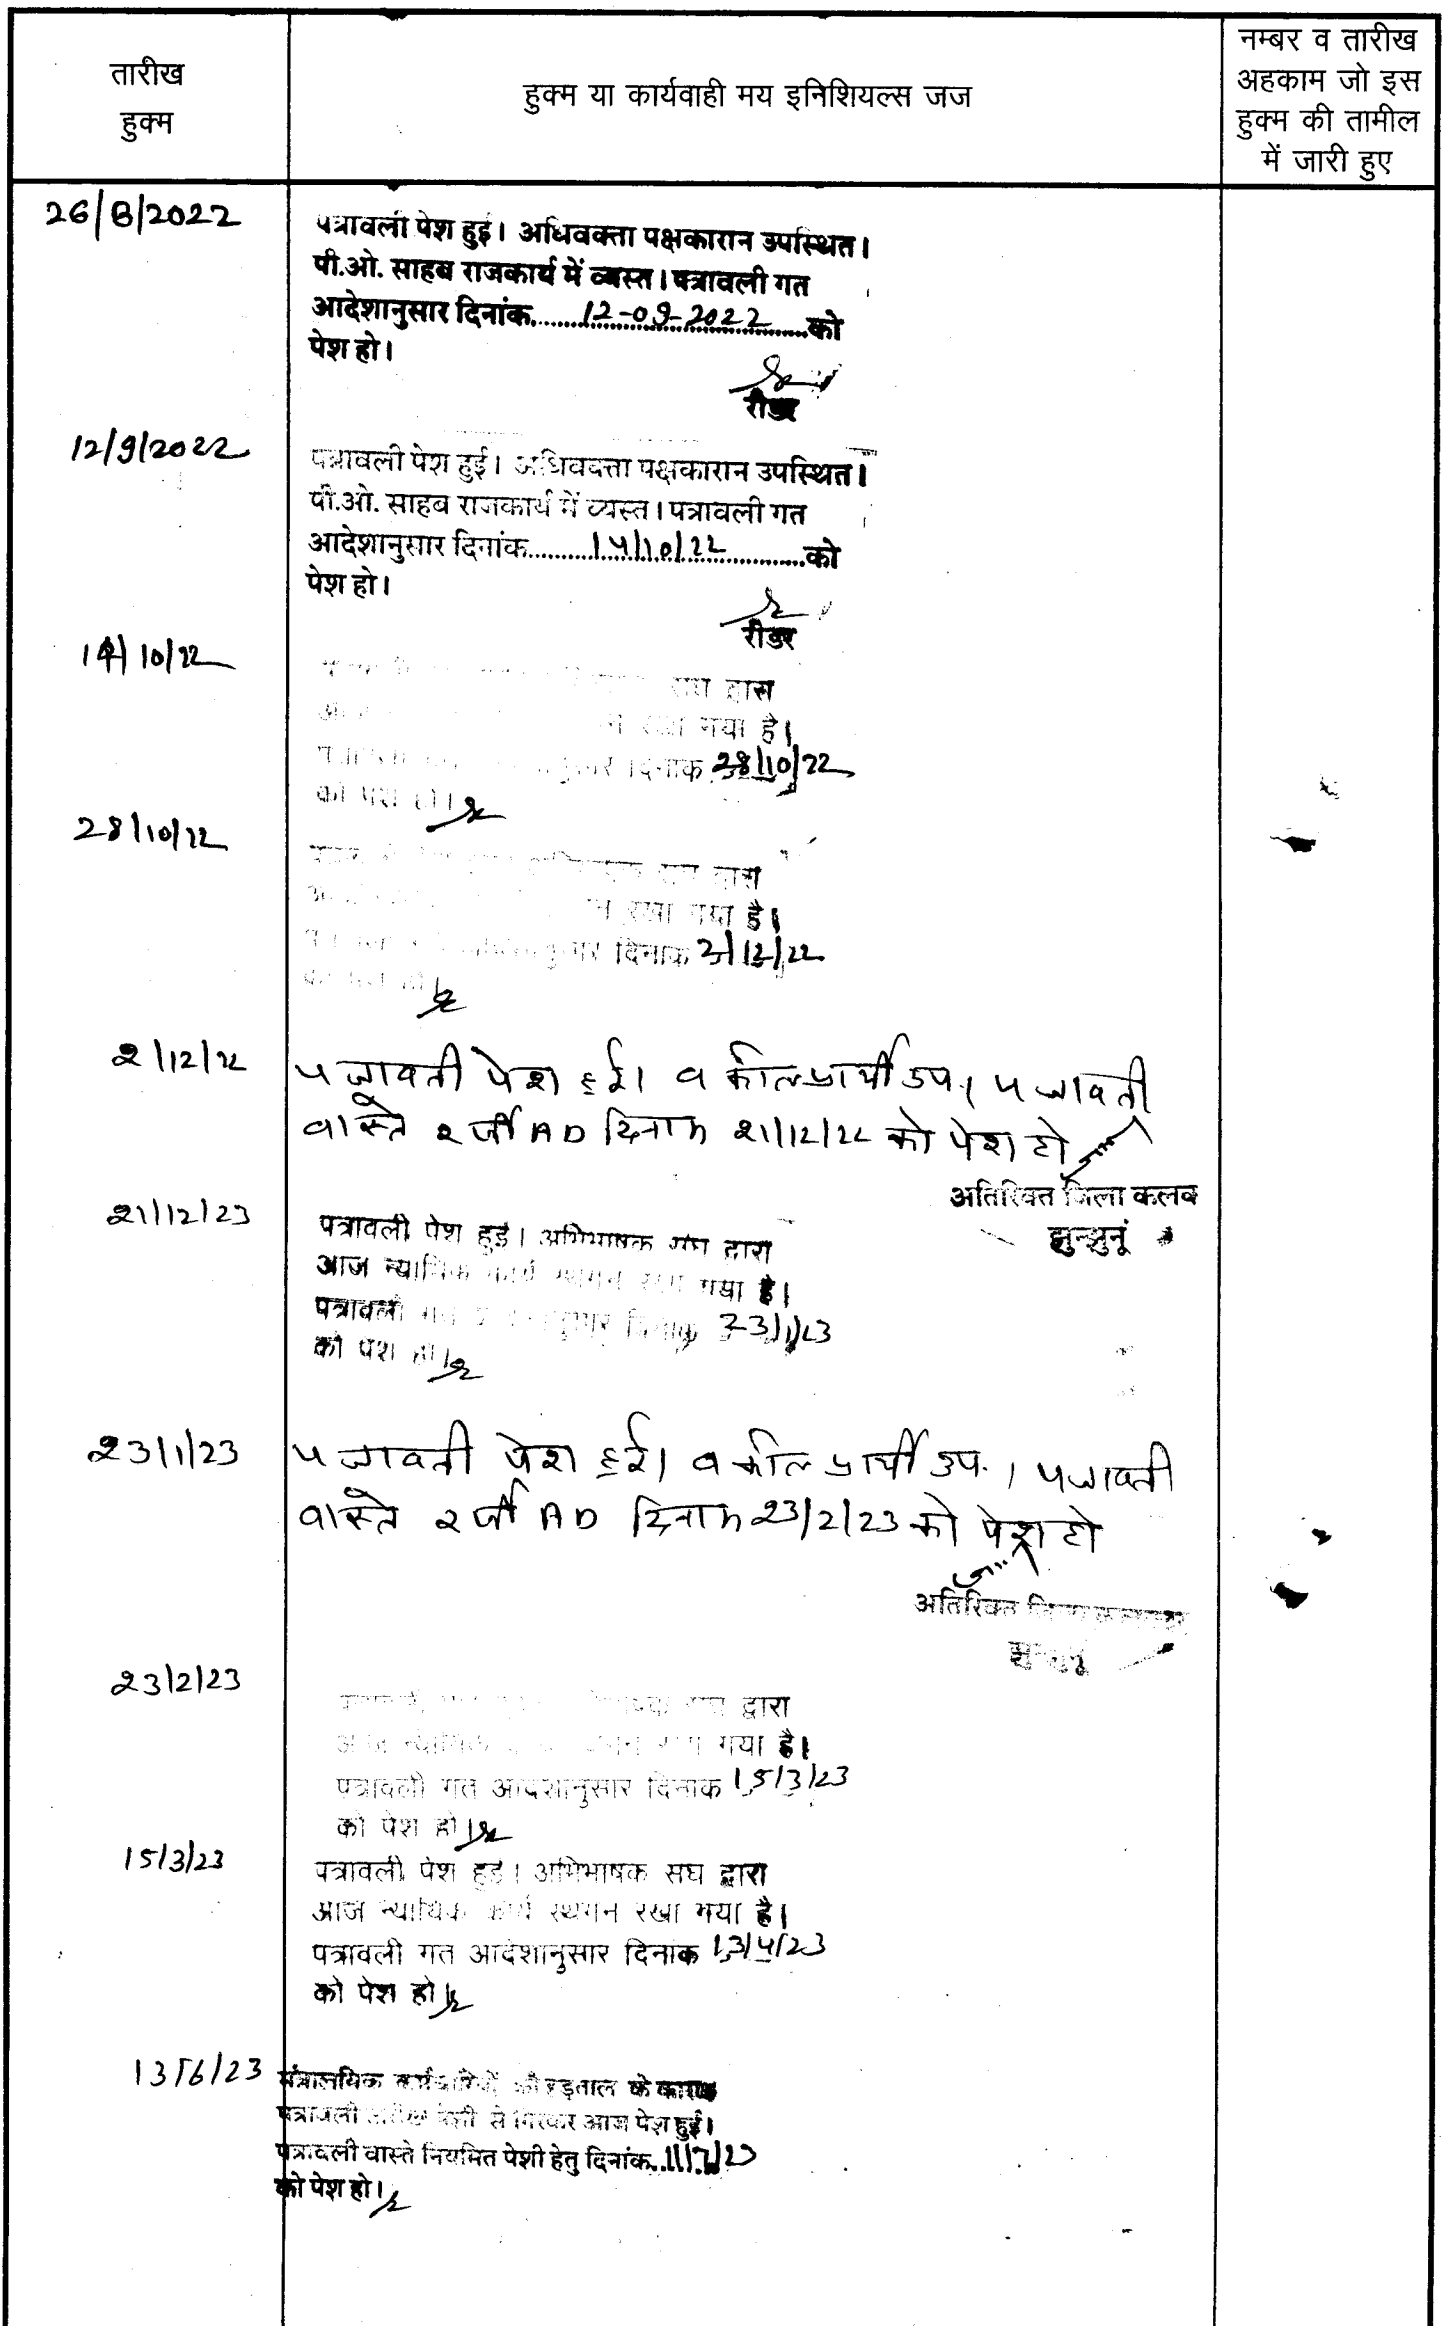 तारीख
हुक्म
हुक्म या कार्यवाही मय इनिशियल्स जज
नम्बर व तारीख
अहकाम जो इस
हुक्म की तामील
में जारी हुए
26/8/2022
पत्रावली पेश हुई। अधिवक्ता पक्षकारान उपस्थित।
पी.ओ. साहब राजकार्य में व्यस्त। पत्रावली गत
आदेशानुसार दिनांक.....12-09-2022.....को
पेश हो।
रीडर
12/9/2022
पत्रावली पेश हुई। अधिवक्ता पक्षकारान उपस्थित।
पी.ओ. साहब राजकार्य में व्यस्त। पत्रावली गत
आदेशानुसार दिनांक.....14/10/22.....को
पेश हो।
रीडर
14/10/22
संघ द्वारा
गया है।
दिनांक 28/10/22
को पेश हो।
28/10/22
संघ द्वारा
रखा गया है।
दिनांक 2/12/22
2/12/22
पत्रावली पेश हुई। वकील प्रार्थी उप.। पत्रावली
वास्ते रजी AD दिनांक 21/12/22 को पेश हो
अतिरिक्त जिला कलक
झुन्झुनूं
21/12/23
पत्रावली पेश हुई। अभिभाषक संघ द्वारा
आज न्यायिक कार्य स्थगन रखा गया है।
पत्रावली गत आदेशानुसार दिनांक 23/1/23
को पेश हो।
23/1/23
पत्रावली पेश हुई। वकील प्रार्थी उप.। पत्रावली
वास्ते रजी AD दिनांक 23/2/23 को पेश हो
अतिरिक्त
झुन्झुनूं
23/2/23
संघ द्वारा
आज न्यायिक गया है।
पत्रावली गत आदेशानुसार दिनांक 15/3/23
को पेश हो।
15/3/23
पत्रावली पेश हुई। अभिभाषक संघ द्वारा
आज न्यायिक कार्य स्थगन रखा गया है।
पत्रावली गत आदेशानुसार दिनांक 13/4/23
को पेश हो।
13/6/23
मंत्रालयिक कर्मचारियों की हड़ताल के कारण
पत्रावली तारीख पेशी से गिरकर आज पेश हुई।
पत्रावली वास्ते नियमित पेशी हेतु दिनांक..11/7/23
को पेश हो।